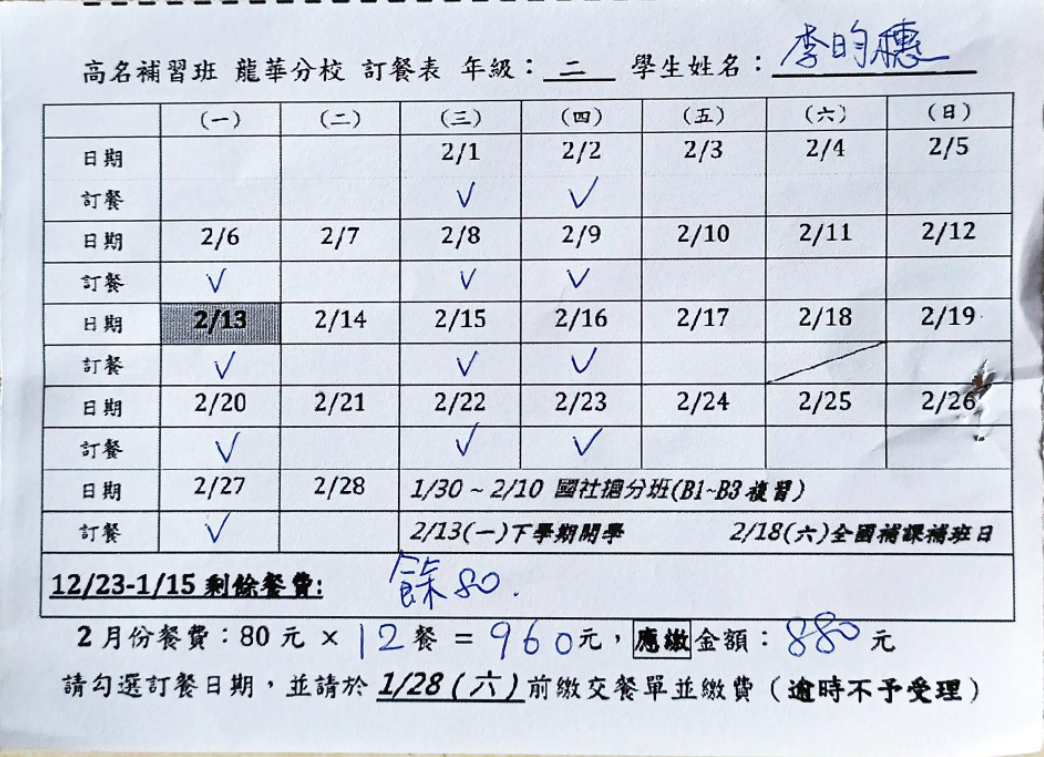 高名補習班 龍華分校 訂餐表 年級：二 學生姓名：李昀穗
(一) (二) (三) (四) (五) (六) (日)
日期 2/1 2/2 2/3 2/4 2/5
訂餐 ✓ ✓
日期 2/6 2/7 2/8 2/9 2/10 2/11 2/12
訂餐 ✓ ✓ ✓
日期 2/13 2/14 2/15 2/16 2/17 2/18 2/19
訂餐 ✓ ✓ ✓
日期 2/20 2/21 2/22 2/23 2/24 2/25 2/26
訂餐 ✓ ✓ ✓
日期 2/27 2/28 1/30 ~ 2/10 國社搶分班(B1~B3複習)
訂餐 ✓ 2/13(一)下學期開學 2/18(六)全國補課補班日
12/23-1/15 剩餘餐費: 餘80.
2月份餐費：80元 × 12餐 = 960元，應繳金額：880元
請勾選訂餐日期，並請於 1/28(六)前繳交餐單並繳費（逾時不予受理）